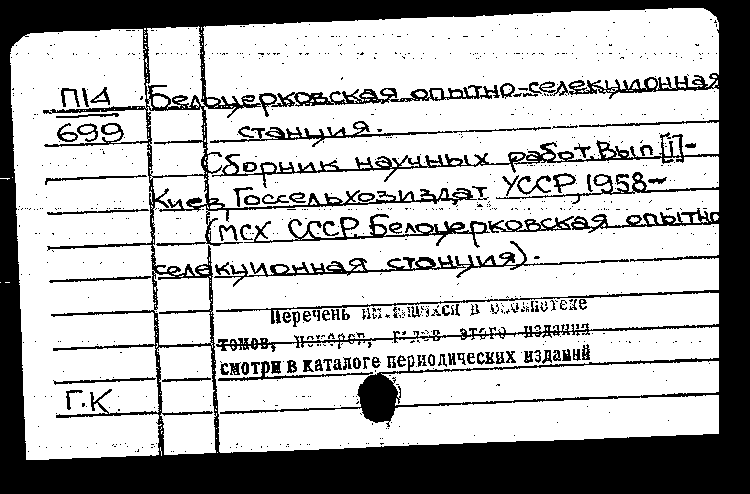 П14 Белоцерковская опытно-селекционная
699 станция.
Сборник научных работ. Вып. [I]-
Киев, Госсельхозиздат УССР, 1958-
(МСХ СССР. Белоцерковская опытно
селекционная станция).
Перечень имеющихся в библиотеке
томов, номеров, годов этого издания
смотри в каталоге периодических изданий
Г.К